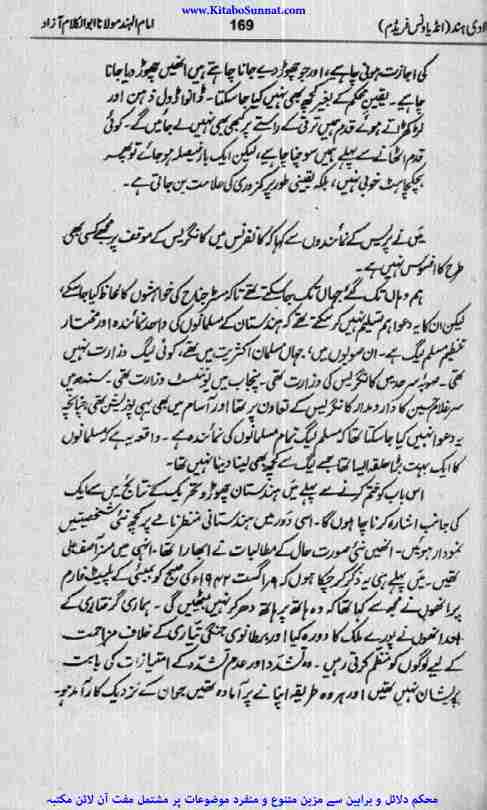 www.KitaboSunnat.com
ادی ہند (انڈیا ونس فریڈم) 169 امام الہند مولانا ابوالکلام آزاد
کی اجازت ہونی چاہیے، اور جو چھوڑ دیے جانا چاہتے ہیں انھیں چھوڑ دیا جانا
چاہیے۔ یقینِ محکم کے بغیر کچھ بھی نہیں کیا جا سکتا۔ ڈانواڈول ذہن اور
لڑکھڑاتے ہوئے قدم ہمیں ترقی کے راستے پر کبھی بھی نہیں لے جائیں گے۔ کوئی
قدم اٹھانے سے پہلے ہمیں سوچنا چاہیے، لیکن ایک بار فیصلہ ہو جائے تو پھر
ہچکچاہٹ خوبی نہیں، بلکہ یقینی طور پر کمزوری کی علامت بن جاتی ہے۔
میں نے پریس کے نمائندوں سے کہا کہ کانفرنس میں کانگریس کے موقف پر مجھے کسی بھی
طرح کا افسوس نہیں ہے۔
ہم وہاں تک گئے جہاں تک جا سکتے تھے تاکہ مسٹر جناح کی خواہشوں کا لحاظ کیا جا سکے،
لیکن ان کا یہ دعوا ہم تسلیم نہیں کر سکتے تھے کہ ہندستان کے مسلمانوں کی واحد نمائندہ اور مختار
تنظیم مسلم لیگ ہے۔ ان صوبوں میں، جہاں مسلمان اکثریت میں تھے، کوئی لیگ وزارت نہیں
تھی۔ صوبہ سرحد میں کانگریس کی وزارت تھی۔ پنجاب میں یونینسٹ وزارت تھی۔ سندھ میں
سر غلام حسین کا دار و مدار کانگریس کے تعاون پر تھا اور آسام میں بھی یہی پوزیشن تھی، چنانچہ
یہ دعوا نہیں کیا جا سکتا تھا کہ مسلم لیگ تمام مسلمانوں کی نمائندہ ہے۔ واقعہ یہ ہے کہ مسلمانوں
کا ایک بہت بڑا حلقہ ایسا تھا جسے لیگ سے کچھ بھی لینا دینا نہیں تھا۔
اس باب کو ختم کرنے سے پہلے میں ہندستان چھوڑ و تحریک کے نتائج میں سے ایک
کی جانب اشارہ کرنا چاہوں گا۔ اسی دور میں ہندستانی منظرنامے پر کچھ نئی شخصیتیں
نمودار ہوئیں۔ انھیں نئی صورت حال کے مطالبات نے ابھارا تھا۔ انہی میں مسز آصف علی
تھیں۔ میں پہلے ہی یہ ذکر کر چکا ہوں کہ ۹ اگست ۱۹۴۲ء کی صبح کو بمبئی کے پلیٹ فارم
پر انھوں نے مجھ سے کہا تھا کہ وہ ہاتھ پر ہاتھ دھر کر نہیں بیٹھیں گی۔ ہماری گرفتاری کے
بعد انھوں نے پورے ملک کا دورہ کیا اور برطانوی جنگی تیاری کے خلاف مزاحمت
کے لیے لوگوں کو منظم کرتی رہیں۔ وہ تشدد اور عدم تشدد کے امتیازات کی بابت
پریشان نہیں تھیں اور ہر وہ طریقہ اپنانے پر آمادہ تھیں جو ان کے نزدیک کارآمد ہو۔
محکم دلائل و براہین سے مزین متنوع و منفرد موضوعات پر مشتمل مفت آن لائن مکتبہ